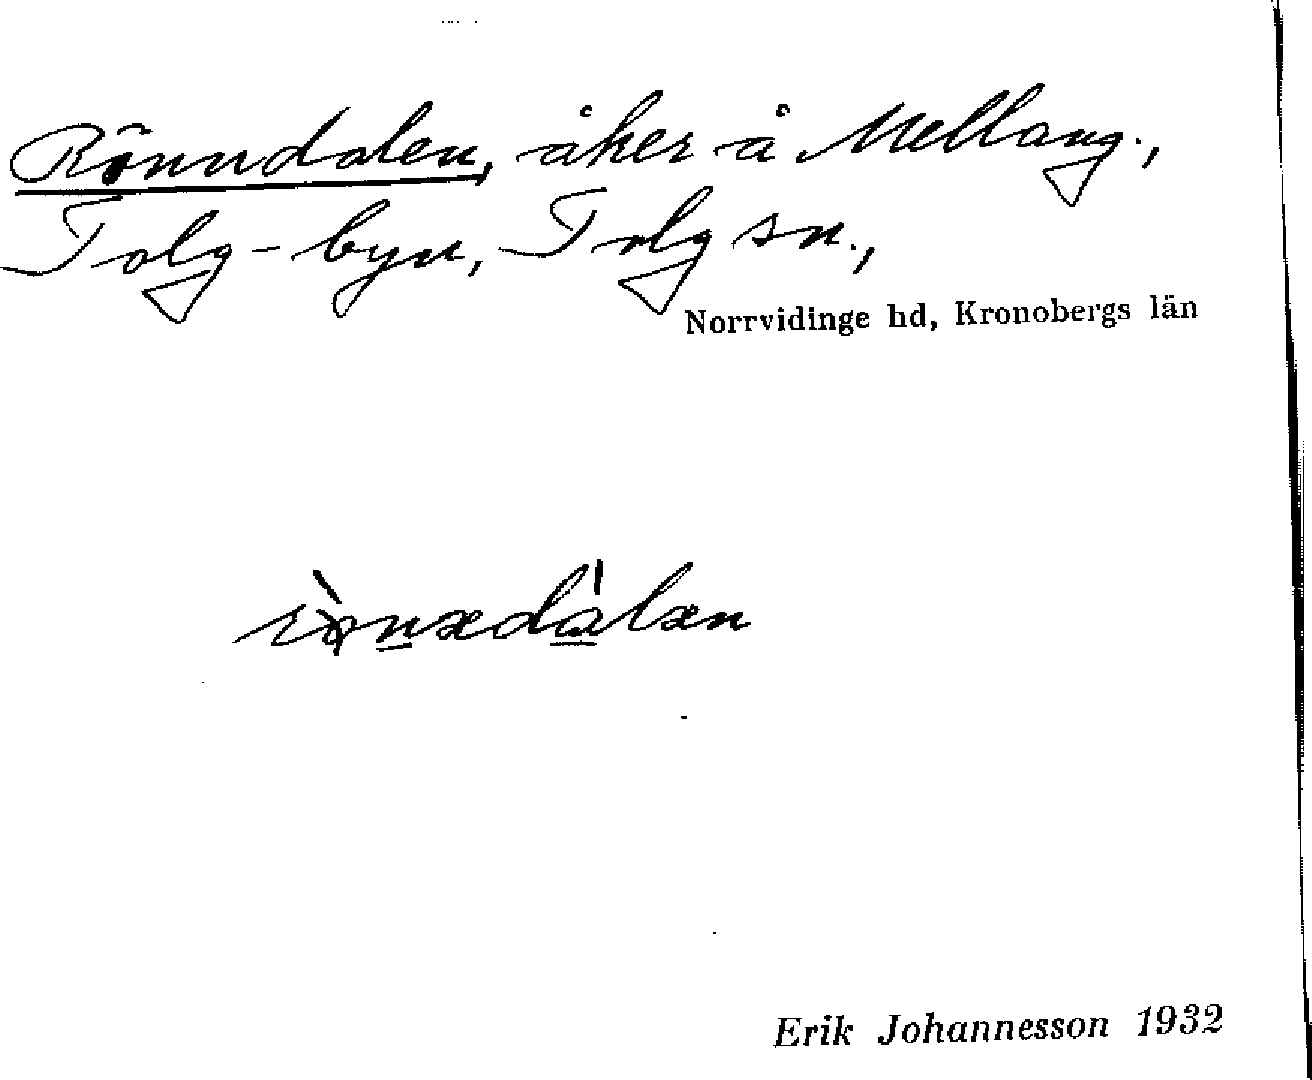 Rönndalen, åker å Mellang.,
Tolg-byn, Tolg sn.,
Norrvidinge hd, Kronobergs län
Erik Johannesson 1932